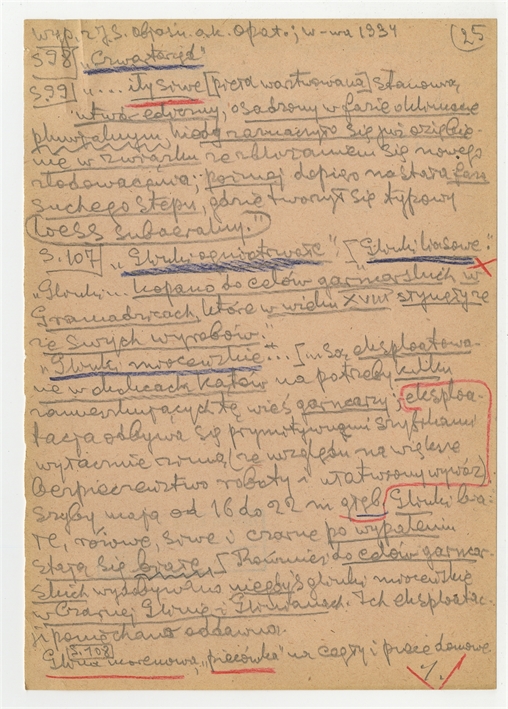 wyp. z J. S. objaśn. ark. Opat.; W-wa 1934 (25
S 98 "Czwartorzęd"
S. 99 "... iły siwe [pięta warstwowana] stanowią
utwór eoliczny, osadzony w fazie o klimacie
pluwialnym, kiedy zaznaczyło się już oziębie-
nie w związku ze zbliżaniem się nowego
zlodowacenia; później dopiero nastała faza
Suchego Stepu, gdzie tworzył się typowy
loess subaeralny."
S. 107 "Glinki ogniotrwałe"; ["Glinki liasowe."
"Glinki... kopano do celów garncarskich w
Gromadzicach, które w wieku XVIII słynęły ze
ze swych wyrobów."
"Glinki mroczewskie"... [... są eksploatowa-
ne w dolicach Kątów na potrzeby kilku
zamieszkujących tę wieś garncarzy; eksploa-
tacja odbywa się prymitywnymi szybikami
wyłącznie zimą (ze względu na większe
bezpieczeństwo roboty i ułatwiony wywóz)
Szyby mają od 16 do 22 m głęb. Glinki bia-
łe, różowe, siwe i czarne po wypaleniu
stają się białe. [Również do celów garncar-
skich wydobywano niegdyś glinki mroczewskie
w Czarnej Glinie i Glinianach. Ich eksploatac-
ji poniechano oddawna.
S. 108
Glina morenowa, "piecówka" na cegły i prace domowe